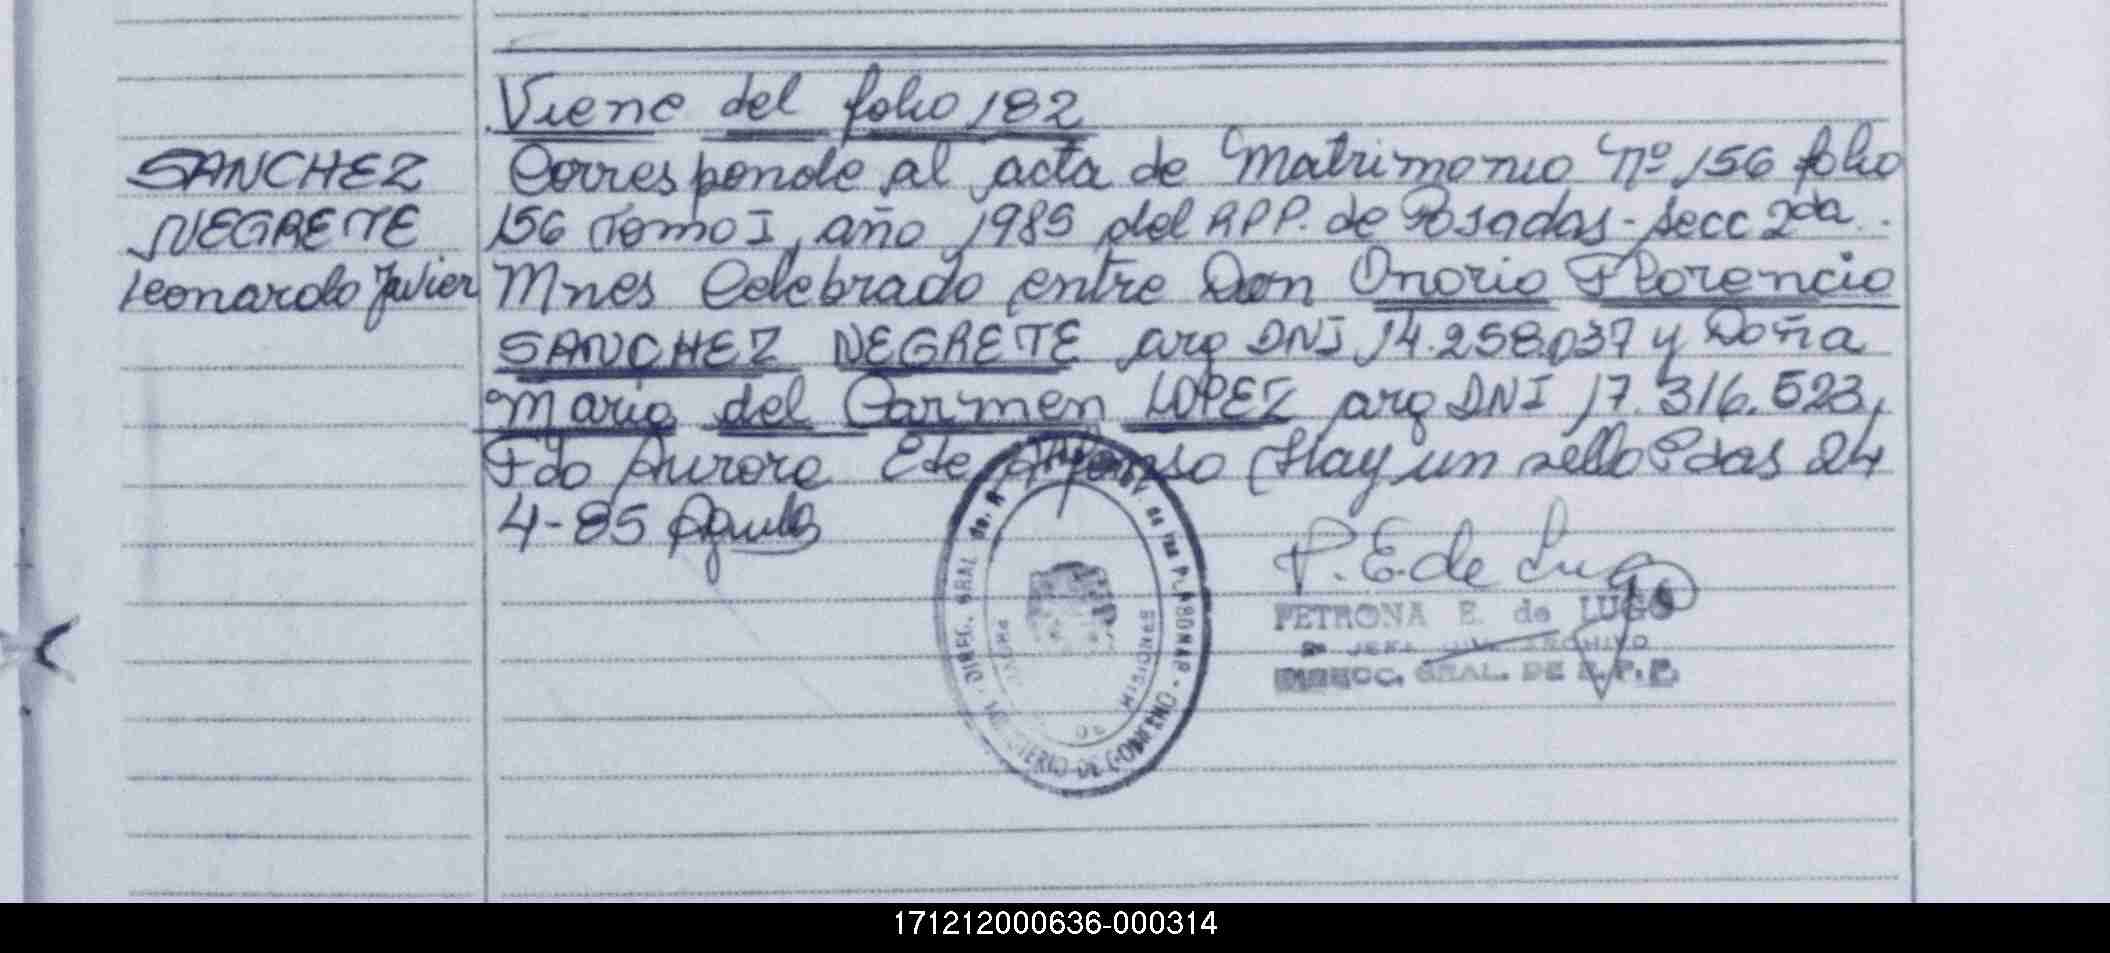 Viene del folio 182
SANCHEZ
NEGRETE
Leonardo Javier
Corresponde al acta de Matrimonio Nº 156 folio
156 Tomo I, año 1985 del RPP. de Posadas - Secc 2da.
Mnes Celebrado entre Don Onorio Florencio
SANCHEZ NEGRETE arg DNI 14.258.037 y Doña
Maria del Carmen LOPEZ arg DNI 17.316.523,
Fdo Aurora E de Alfonso (Hay un sello Pdas 24
4-85
P. E. de Lugo
PETRONA E. de LUGO
ARCHIVO
DIRECC. GRAL. DE R.P.P.
DIREC. GRAL de
MINISTERIO DE GOBIERNO
MISIONES
171212000636-000314